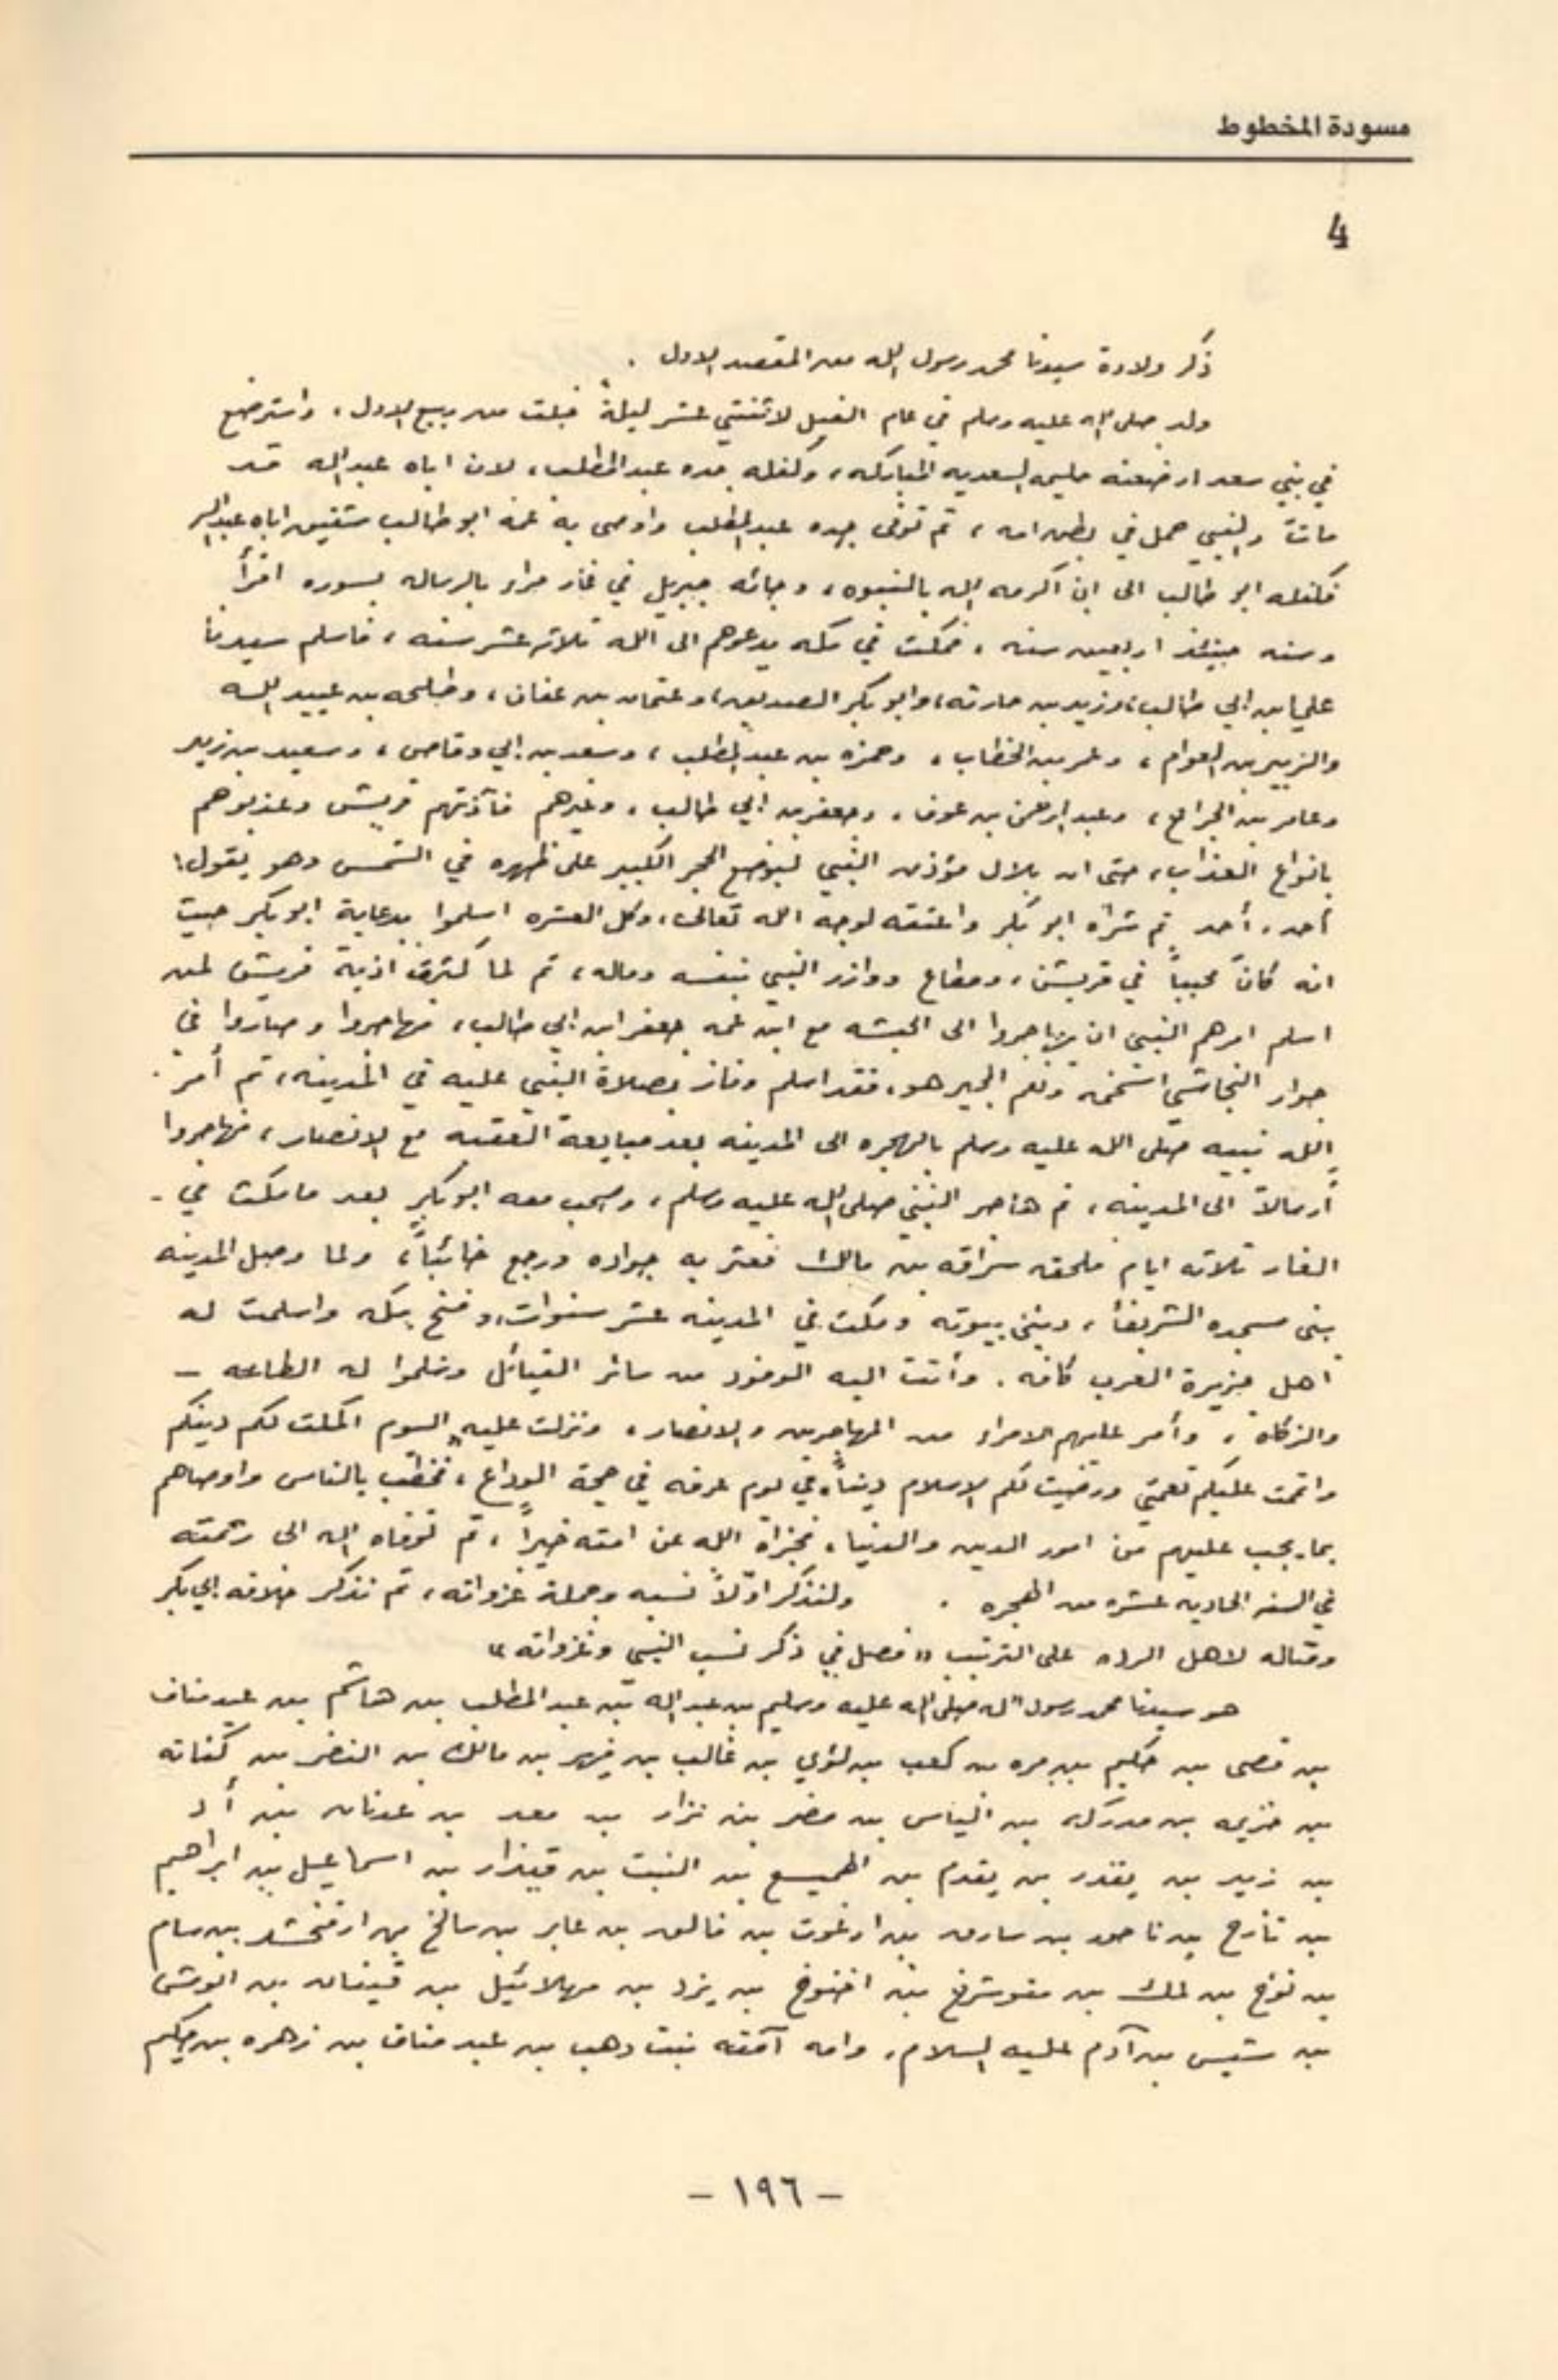 مسودة المخطوط
4
ذكر ولادة سيدنا محمد رسول الله من المقصد الاول .
ولد صلى الله عليه وسلم في عام الفيل لاثنتي عشر ليلةً خلت من ربيع الاول ، واسترضع
في بني سعد ارضعته حليمه السعديه المباركه ، وكفله جده عبد المطلب ، لان اباه عبد الله قد
مات والنبي حمل في بطن امه ، ثم توفى جده عبد المطلب واوصى به عمه ابو طالب شقيق اباه عبد الله
فكفله ابو طالب الى ان اكرمه الله بالنبوه ، وجائه جبريل في غار حراء بالرساله بسوره اقرأ
وسنه حينئذ اربعين سنه ، فمكث في مكه يدعوهم الى الله ثلاثه عشر سنه ، فاسلم سيدنا
علي ابن ابي طالب ، وزيد بن حارثه ، وابو بكر الصديق ، وعثمان بن عفان ، وطلحه بن عبيد الله
والزبير بن العوام ، وعمر بن الخطاب ، وحمزه بن عبد المطلب ، وسعد بن ابي وقاص ، وسعيد بن زيد
وعامر بن الجراح ، وعبد الرحمن بن عوف ، وجعفر بن ابي طالب ، وغيرهم فآذتهم قريش وعذبوهم
بانواع العذاب ، حتى ان بلال مؤذن النبي ليوضع الحجر الكبير على ظهره في الشمس وهو يقول :
أحد ، أحد ثم شراه ابو بكر واعتقه لوجه الله تعالى ، وكل العشره اسلموا بدعاية ابو بكر حيث
انه كان محبباً في قريش ، ومطاع ووازر النبي بنفسه وماله ، ثم لما كثرت اذية قريش لمن
اسلم امرهم النبي ان يهاجروا الى الحبشه مع ابن عمه جعفر ابن ابي طالب ، فهاجروا وصاروا في
جوار النجاشي ونعم المجير هو ، فقد اسلم وفاز بصلاة النبي عليه في المدينه ، ثم أمر
الله نبيه صلى الله عليه وسلم بالهجره الى المدينه بعد مبايعة العقبه مع الانصار ، فهاجروا
أرسالاً الى المدينه ، ثم هاجر النبي صلى الله عليه وسلم ، وصحب معه ابو بكر بعد ما مكث في -
الغار ثلاثه ايام فلحقه سراقه بن مالك فعثر به جواده ورجع خائباً ، ولما وصل المدينه
بنى مسجده الشريف ، وبنى بيوته ومكث في المدينه عشر سنوات ، وفتح مكه واسلمت له
اهل جزيرة العرب كافه . وأتت اليه الوفود من سائر القبائل وسلموا له الطاعه -
والزكاة ، وأمر عليهم الامراء من المهاجرين والانصار ، ونزلت عليه " اليوم اكملت لكم دينكم
واتممت عليكم نعمتي ورضيت لكم الاسلام ديناً " في يوم عرفه في حجة الوداع ، فخطب بالناس واوصاهم
بما يجب عليهم من امور الدين والدنيا ، فجزاه الله عن امته خيراً ، ثم توفاه الله الى رحمته
في السنه الحاديه عشره من الهجره . ولنذكر اولاً نسبه وجملة غزواته ، ثم نذكر خلافه ابي بكر
وقتاله لاهل الرده على الترتيب " فصل في ذكر نسب النبي وغزواته "
هو سيدنا محمد رسول الله صلى الله عليه وسلم بن عبد الله بن عبد المطلب بن هاشم بن عبد مناف
بن قصى بن حكيم بن مره بن كعب بن لؤي بن غالب بن فهر بن مالك بن النضر بن كنانه
بن خزيمه بن مدركه بن الياس بن مضر بن نزار بن معد بن عدنان بن أد
بن زيد بن يقدر بن يقدم بن الهميسع بن النبت بن قيذار بن اسماعيل بن ابراهيم
بن تارح بن ناحور بن ساروه بن ارغوت بن فالق بن عابر بن سالخ بن ارفخشد بن سام
بن نوح بن لمك بن متوشلخ بن اخنوخ بن يزد بن مهلائيل بن قينان بن انوش
بن شيس بن آدم عليه السلام ، وامه آمنه بنت وهب بن عبد مناف بن زهره بن حكيم
- ١٩٦ -